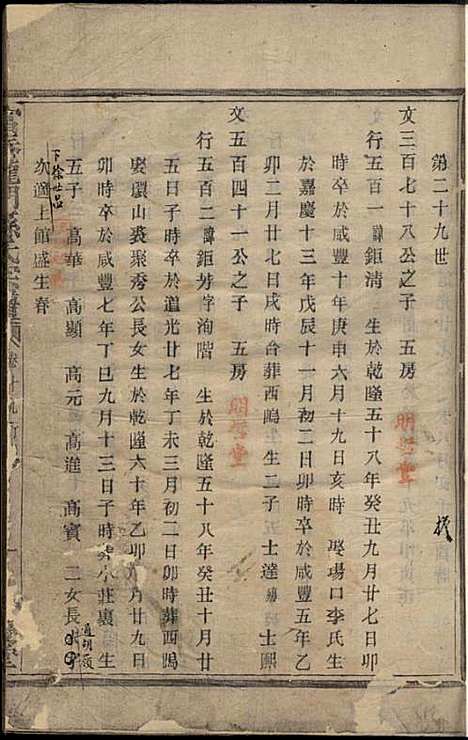 第二十九世
文三百七十八公之子 五房
行五百一 諱鉅清 生於乾隆五十八年癸丑九月廿七日卯
時卒於咸豐十年庚申六月十九日亥時 娶場口李氏生
於嘉慶十三年戊辰十一月初二日卯時卒於咸豐五年乙
卯二月廿七日戌時合葬西塢 生二子 士達 士熙
文五百四十一公之子 五房
行五百二 諱鉅芳字洵階 生於乾隆五十八年癸丑十月廿
五日子時卒於道光廿七年丁未三月初二日卯時葬西塢
娶環山裘聚秀公長女生於乾隆六十年乙卯 月廿九日
卯時卒於咸豐七年丁巳九月十三日子時 小莊裏 生
五子 高華 高顯 高元 高進 高賓 二女長
次適上館盛生春
明哲堂
明哲堂